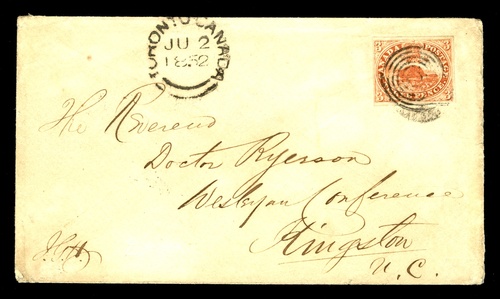 TORONTO CANADA
JU 2
1852
3 CANADA POSTAGE 3
The Reverend
Doctor Ryerson
Wesleyan Conference
Kingston
U.C.